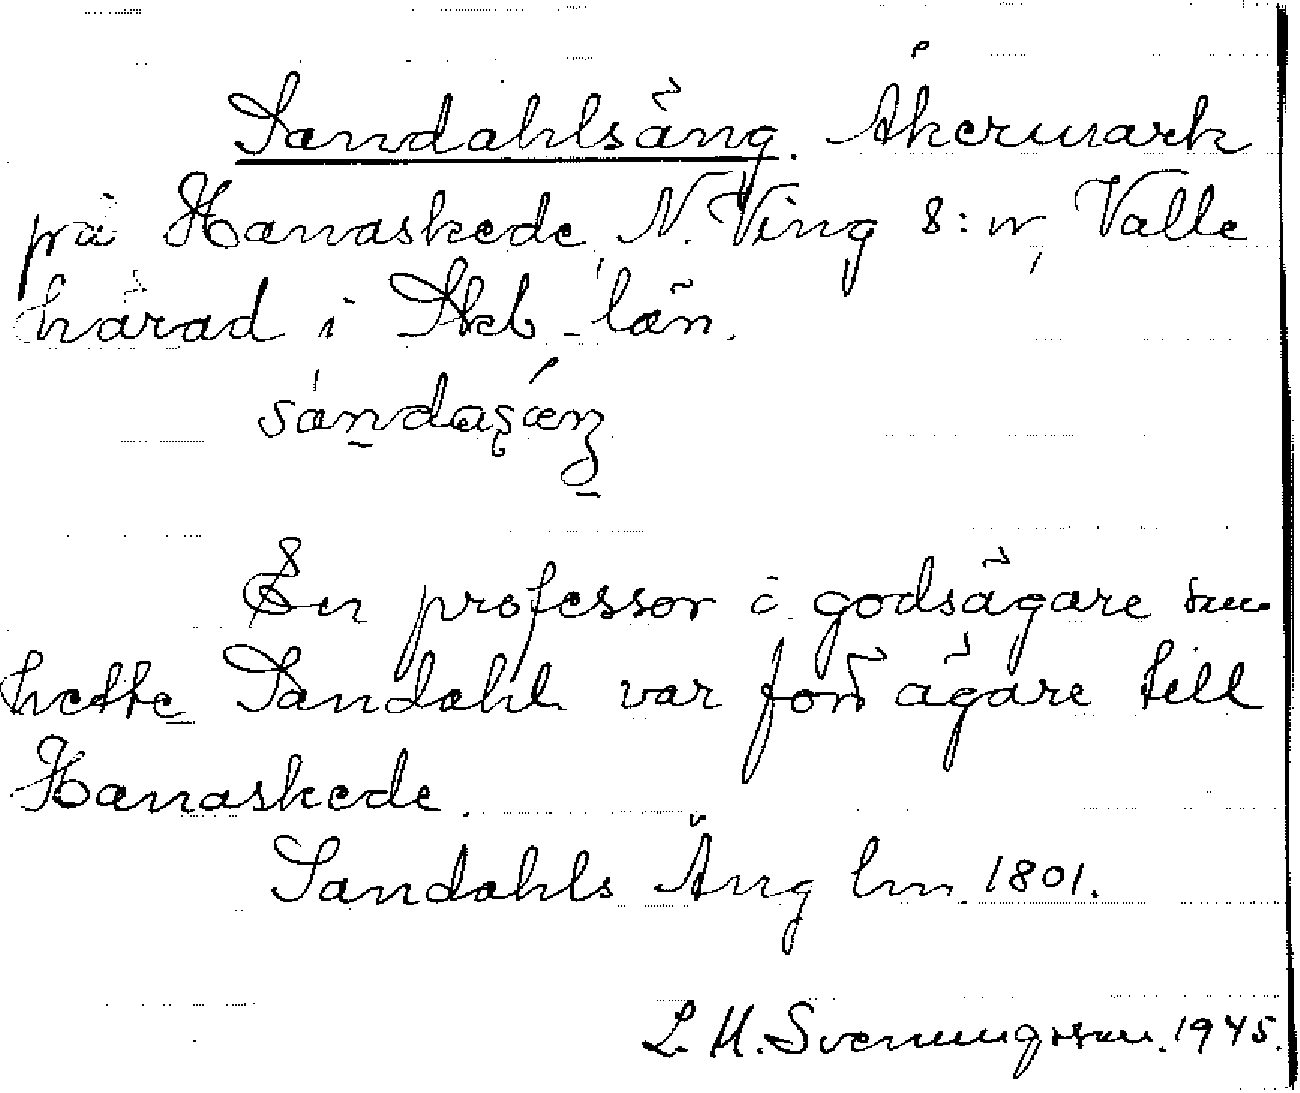 Sandahlsäng. Åkermark
på Hanaskede, N. Ving s:n, Valle
härad i Skb. län.
En professor o. godsägare som
hette Sandahl var förr ägare till
Hanaskede.
Sandahls Äng lm. 1801.
L. M. Svenungsson. 1945.